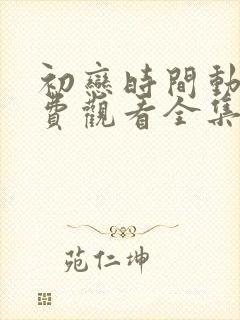 初戀時間動
費觀看全集
苑仁坤